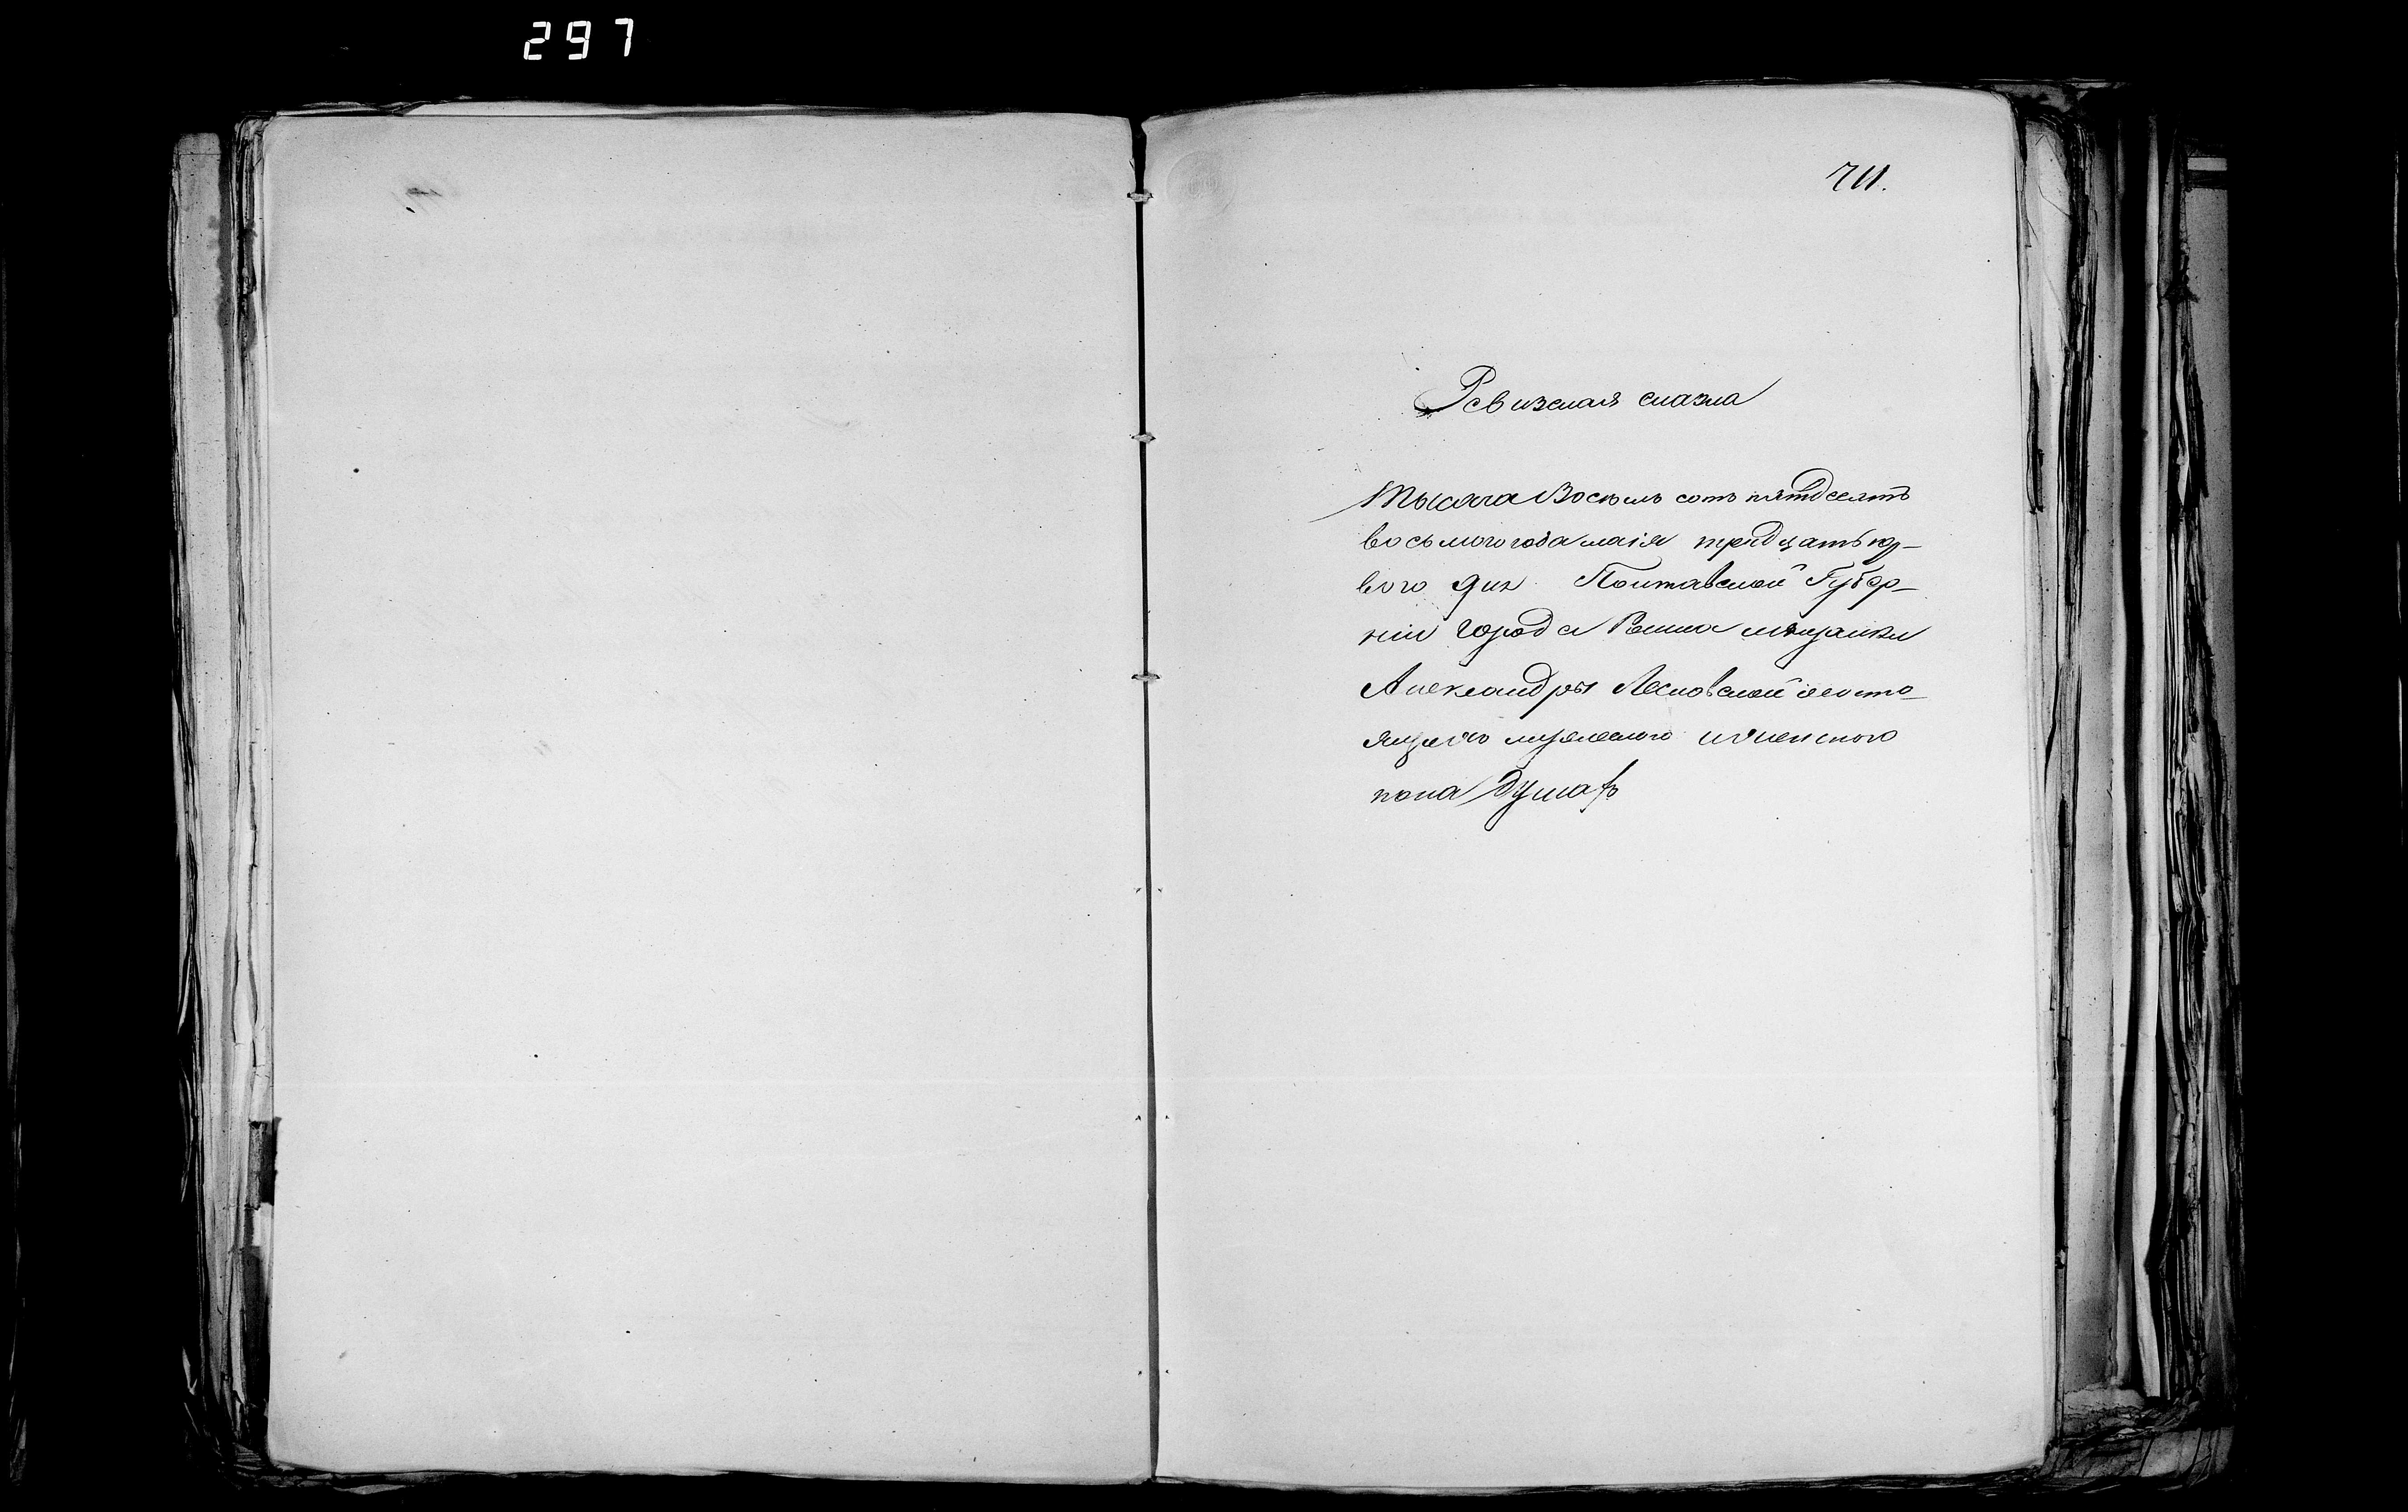 297
711.
Ревизская сказка
Тысяча Восемь сотъ пятдесятъ
восьмого года маія тридцать пер-
вого дня Полтавской Губер-
ніи города Ромна мѣщанки
Александры Лесновской о состо-
ящихъ мужеского и женского
пола душахъ